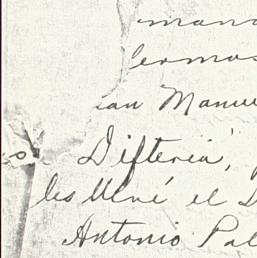 mano
ermos
an Manue
Difteria,
les llevé el D
Antonio Pal